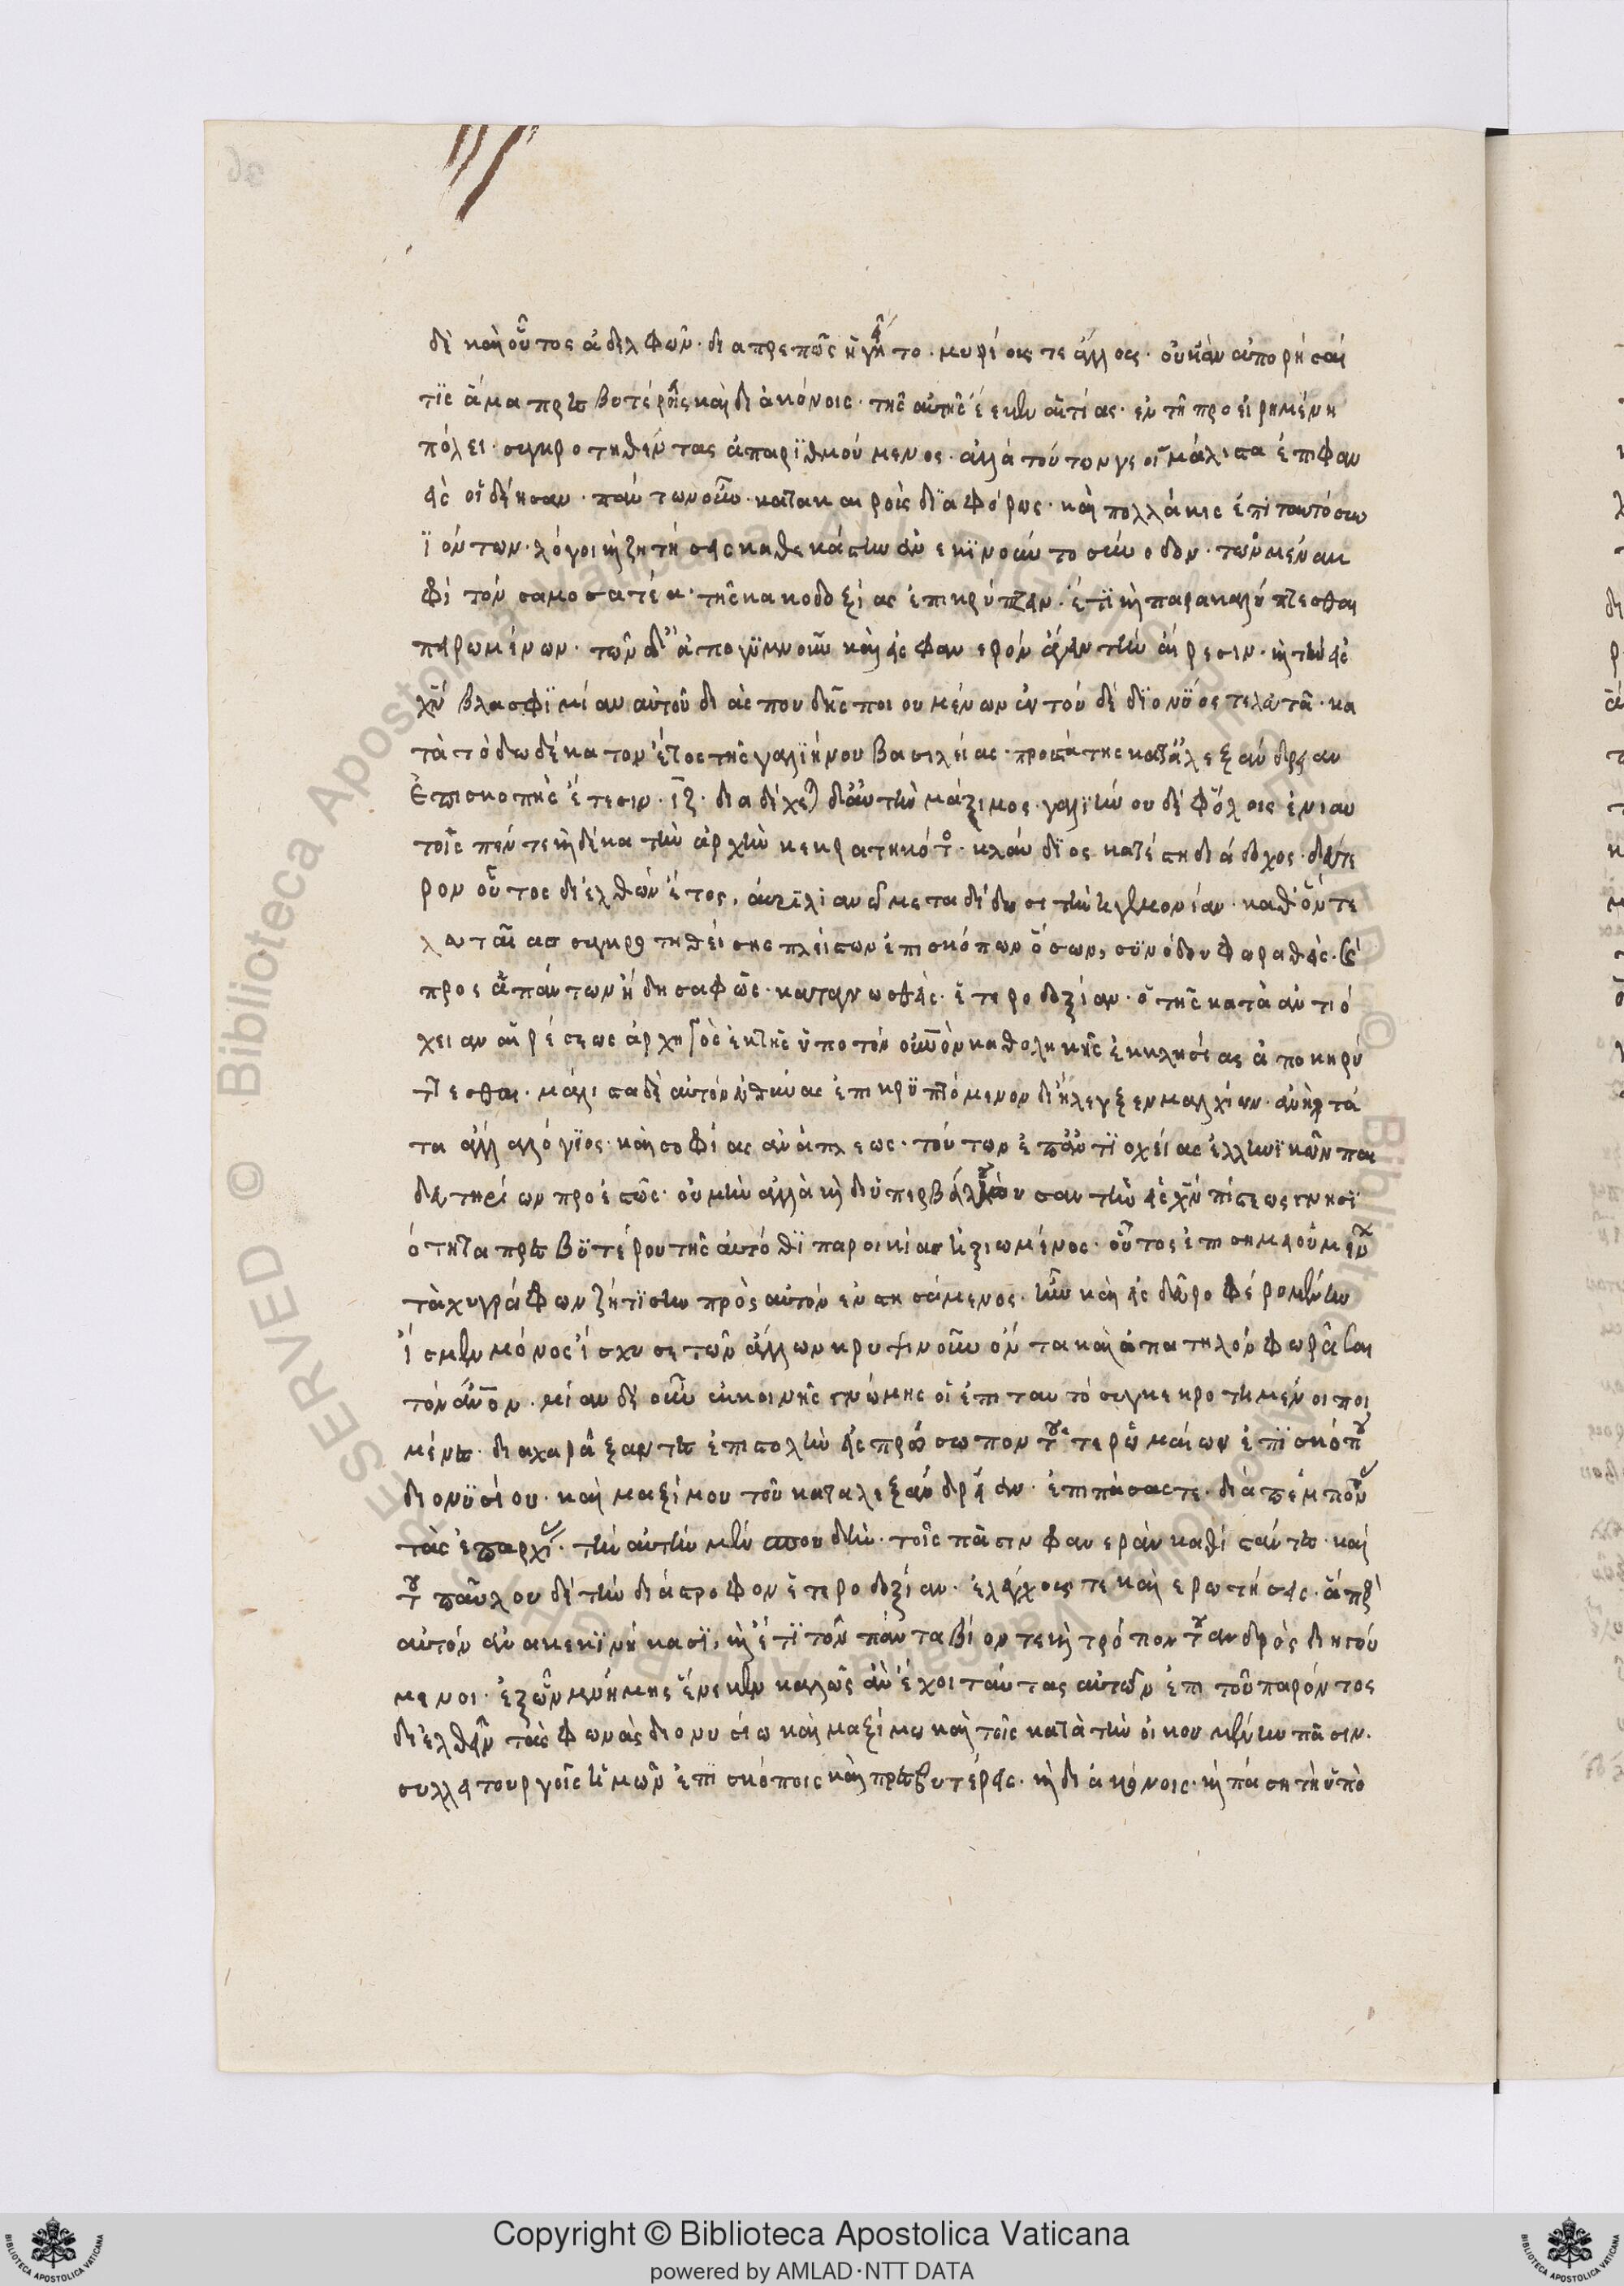 δὲ καὶ οὗτος ἀδελφῶν· διαπρεπῶς ἡγεῖτο· μυρίοις τε ἄλλοις· οὐκ ἂν ἀπορήσαί
τις ἅμα πρεσβυτέροις καὶ διακόνοις· τῆς αὐτῆς ἕνεκεν αἰτίας· ἐν τῇ προειρημένῃ
πόλει· συγκροτηθέντας ἀπαριθμούμενος· ἀλλὰ τούτων γε οἱ μάλιστα ἐπιφαν
εῖς οἵδε ἦσαν· πάντων οὖν· κατὰ καιροὺς διαφόρως· καὶ πολλάκις ἐπὶ ταυτὸ συν
ϊόντων· λόγοι καὶ ζητήσεις καθ' ἑκάστην ἀνεκινοῦντο σύνοδον· τῶν μὲν ἀμ
φὶ τὸν σαμοσατέα· τῆς κακοδοξίας ἐπικρύπτειν· ἔτι καὶ παρακαλύπτεσθαι
πειρωμένων· τῶν δ' ἀπογυμνοῦν καὶ εἰς φανερὸν ἄγειν τὴν αἵρεσιν· καὶ τὴν εἰς
χν βλασφιμίαν αὐτοῦ διὰ σπουδῆς ποιουμένων ἐν τούτῳ δὲ διονύσιος τελευτᾷ· κα
τὰ τὸ δωδέκατον ἔτος τῆς γαλιήνου βασιλείας· προστὰς τῆς κατ' ἀλεξάνδρειαν
Ἐπισκοπῆς ἔτεσιν· ιζ· διαδέχεται δ' αὐτὸν μάξιμος· γαλιήνου δὲ ἐφ' ὅλοις ἐνιαυ
τοῖς πέντε καὶ δέκα τὴν ἀρχὴν κεκρατηκότος· κλαύδϊος κατέστη διάδοχος· δεύτε
ρον οὗτος διελθὼν ἔτος, αὐρϊλιανῷ μεταδίδωσι τὴν ἡγεμονίαν· καθ' ὃν τε
λευταίας συγκροτηθείσης πλείστων ἐπισκόπων ὅσων, συνόδου φωραθεὶς· καὶ
πρὸς ἁπάντων ἤδη σαφῶς· καταγνωσθεὶς· ἑτεροδοξίαν· ὁ τῆς κατὰ ἀντιό
χειαν αἱρέσεως ἀρχηγὸς ἐκ τῆς ὑπὸ τὸν οὐνὸν καθολικῆς ἐκκλησίας ἀποκηρύ
ττεσθαι· μάλιστα δὲ αὐτὸν εὐθύνας ἐπικρυπτόμενον διήλεγξεν μαλχίων· ἀνὴρ τά
τα ἄλλα λόγϊος· καὶ σοφίας ἀνάπλεως· τούτων ἐπ' ἀντϊοχείας ἑλληνικῶν παι
δευτηρίων προεστῶς· οὐ μὴν ἀλλὰ καὶ δι' ὑπερβάλλουσαν τὴν εἰς χν πίστεως γνησϊ
ότητα πρεσβυτέρου τῆς αὐτόθϊ παροικίας ἠξιωμένος· οὗτος ἐπισημειουμένων
τὰχυγράφων ζήτϊσιν πρὸς αὐτὸν ἐνστησάμενος· ἣν καὶ εἰς δεῦρο φερομένην
ἴσμεν μόνος ἴσχυσε τῶν ἄλλων κρυψίνουν ὄντα καὶ ἀπατηλὸν φωρᾶσαι
τὸν ἀνον· μίαν δὲ οὖν ἐκ κοινῆς γνώμης οἱ ἐπὶ ταυτὸ συγκεκροτημένοι ποι
μένες· διαχαράξαντες ἐπιστολὴν εἰς πρόσωπον τοῦ τε ῥωμαίων ἐπϊσκόπου
διονϋσίου· καὶ μαξίμου τοῦ κατ' ἀλεξάνδρειαν· ἐπὶ πάσας τε· διαπέμπουσι
τὰς ἐπαρχίας· τὴν αὐτῶν μὲν σπουδὴν· τοῖς πᾶσιν φανερὰν καθιστάντες· καὶ
τοῦ παύλου δὲ τὴν διάστροφον ἑτεροδοξίαν· ἐλέγχους τε καὶ ερωτήσεις· ἃς πρὸς
αὐτὸν ἀνακεκϊνήκασϊ, καὶ ἔτϊ τὸν πάντα βίον τε καὶ τρόπον τοῦ ανδρὸς διηγού
μενοι· ἐξ ὧν μνήμης ἕνεκεν καλῶς ἂν ἔχοι ταύτας αὐτῶν ἐπὶ τοῦ παρόντος
διελθεῖν τὰς φωνὰς διονυσίω καὶ μαξίμω καὶ τοῖς κατὰ τὴν οἰκουμένην πᾶσιν·
συλλειτουργοῖς ἡμῶν ἐπϊσκόποις καὶ πρεσβυτέροις· καὶ διακόνοις· καὶ πάσῃ τῇ ὑπὸ
Copyright © Biblioteca Apostolica Vaticana
powered by AMLAD·NTT DATA